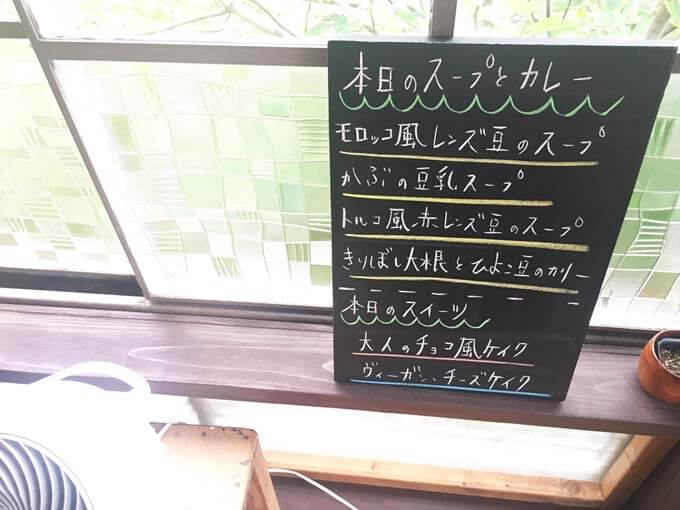 本日のスープとカレー
モロッコ風レンズ豆のスープ
かぶの豆乳スープ
トルコ風赤レンズ豆のスープ
きりぼし大根とひよこ豆のカリー
本日のスイーツ
大人のチョコ風ケイク
ヴィーガン、チーズケイク